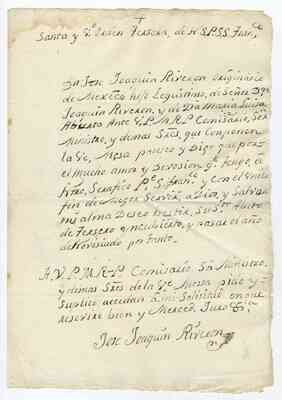 ✝
Santa y Vᵉ Orden Tersera, de N.S.P.S.S. Franᶜᵒ
Dn Jose Joaquin Riveron Originario
de Mexico hijo Legitimo, de Señor Dⁿ
Joaquin Riveron, y de Dᵃ Maria Luisa
Ante V.P.M.R.P Comisario, Sʳ
Ministro, y demas Sʳᵉˢ que Componen
la Vᵉ Mesa paresco y Digo que por
el mucho amor y Devosion qᵉ tengo, a
Ntro, Serafico Pᵉ Sⁿ Franᶜᵒ y con el unico
fin de mejor Servir, a Dios, y Salvar
mi alma Deseo vestir, Su Sᵗᵒ Avito
de Tersero y resibirlo, y pasar el año
de Novisiado por tanto.
A.V.P.M.R.P. Comisario Sʳ Ministro
y demas Sʳᵉˢ de la Vᵉ Mesa pido y
Suplico accedan a mi Solisitud en que
resevire bien y Mersed Juro &ᵃ
Jose Joaquin Riveron